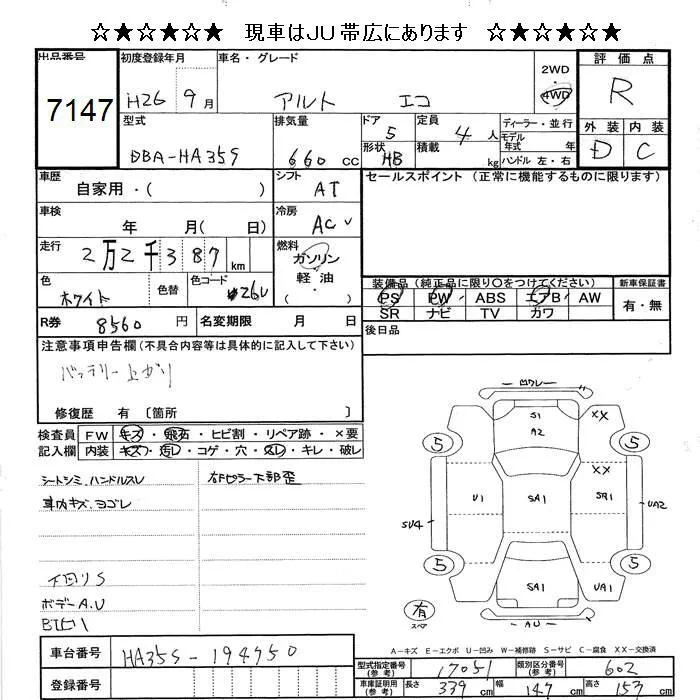 ☆★☆★☆★☆ 現車はJU帯広にあります ☆★☆★☆★☆
出品番号 7147
初度登録年月 H26 9月
車名・グレード アルト エコ
2WD
4WD
評価点 R
型式 DBA-HA35S
排気量 660 cc
ドア 5
形状 HB
定員 4人
積載 kg
ディーラー・並行
モデル年式 年
ハンドル 左・右
外装 D
内装 C
車歴 自家用・( )
シフト AT
セールスポイント (正常に機能するものに限ります)
車検 年 月( 日)
冷房 AC
走行 2万2千387 km
燃料 ガソリン・軽油・( )
色 ホワイト
色替
色コード 26U
装備品 (純正品に限り○をつけてください)
PS PW ABS エアB AW
SR ナビ TV カワ
新車保証書 有・無
R券 8560 円
名変期限 月 日
後日品
注意事項申告欄(不具合内容等は具体的に記入して下さい)
バッテリー上がり
修復歴 有 〔箇所 〕
検査員記入欄
FW キズ・飛石・ヒビ割・リペア跡・×要
内装 キズ・汚レ・コゲ・穴・スレ・キレ・破レ
シートシミ、ハンドルスレ
車内キズ、ヨゴレ
右Fピラー下部歪
下回りS
ボデーA.U
凹ワレ
S1
A2
XX
XX
5
5
U1
SA1
SA1
UA2
SU4
5
5
SA1
UA1
有
スペア
AU
A-キズ E-エクボ U-凹ミ W-補修跡 S-サビ C-腐食 XX-交換済
車台番号 HA35S-194950
登録番号
型式指定番号(参考) 17051
類別区分番号(参考) 602
車庫証明用(参考) 長さ 339 cm 幅 147 cm 高さ 153 cm